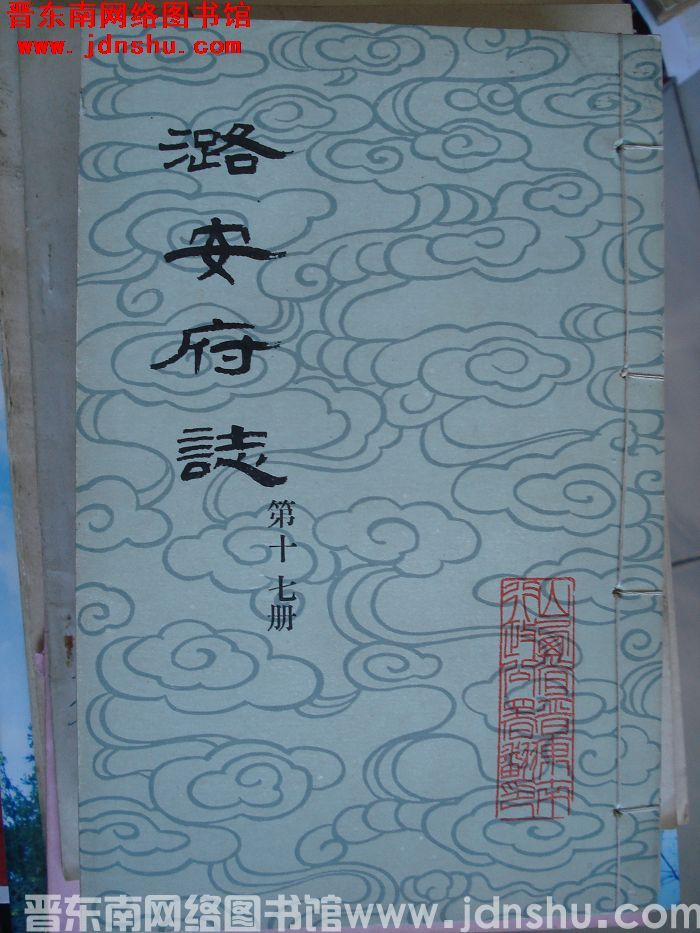 晋东南网络图书馆
www.jdnshu.com
潞安府誌
第十七册
山西省晋东南
行政公署翻印
晋东南网络图书馆www.jdnshu.com